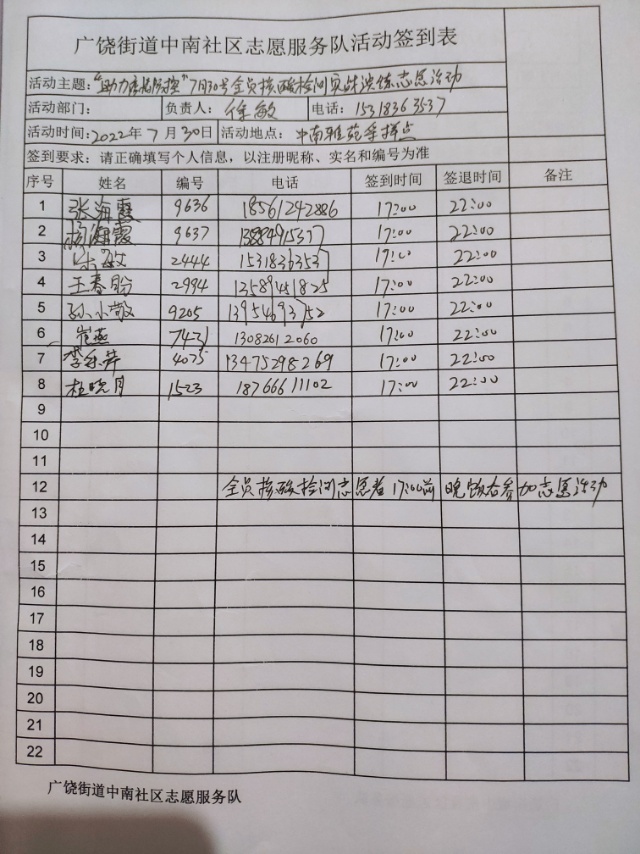 广饶街道中南社区志愿服务队活动签到表
活动主题：“助力疫情防控”7月30号全员核酸检测实战演练志愿活动
活动部门： 负责人：徐敏 电话：15318363537
活动时间：2022年7月30日 活动地点：中南雅苑采样点
签到要求：请正确填写个人信息，以注册昵称、实名和编号为准
序号 姓名 编号 电话 签到时间 签退时间 备注
1 张海霞 9636 18561242886 17:00 22:00
2 杨海霞 9637 17:00 22:00
3 徐敏 2444 15318363537 17:00 22:00
4 王春盼 2994 13589451825 17:00 22:00
5 孙小敬 9205 13954693752 17:00 22:00
6 崔燕 7431 13082612060 17:00 22:00
7 4075 13475298269 17:00 22:00
8 杜晓月 1523 18766611102 17:00 22:00
9
10
11
12 全员核酸检测志愿者17:00前 晚饭后参加志愿活动
13
14
15
16
17
18
19
20
21
22
广饶街道中南社区志愿服务队